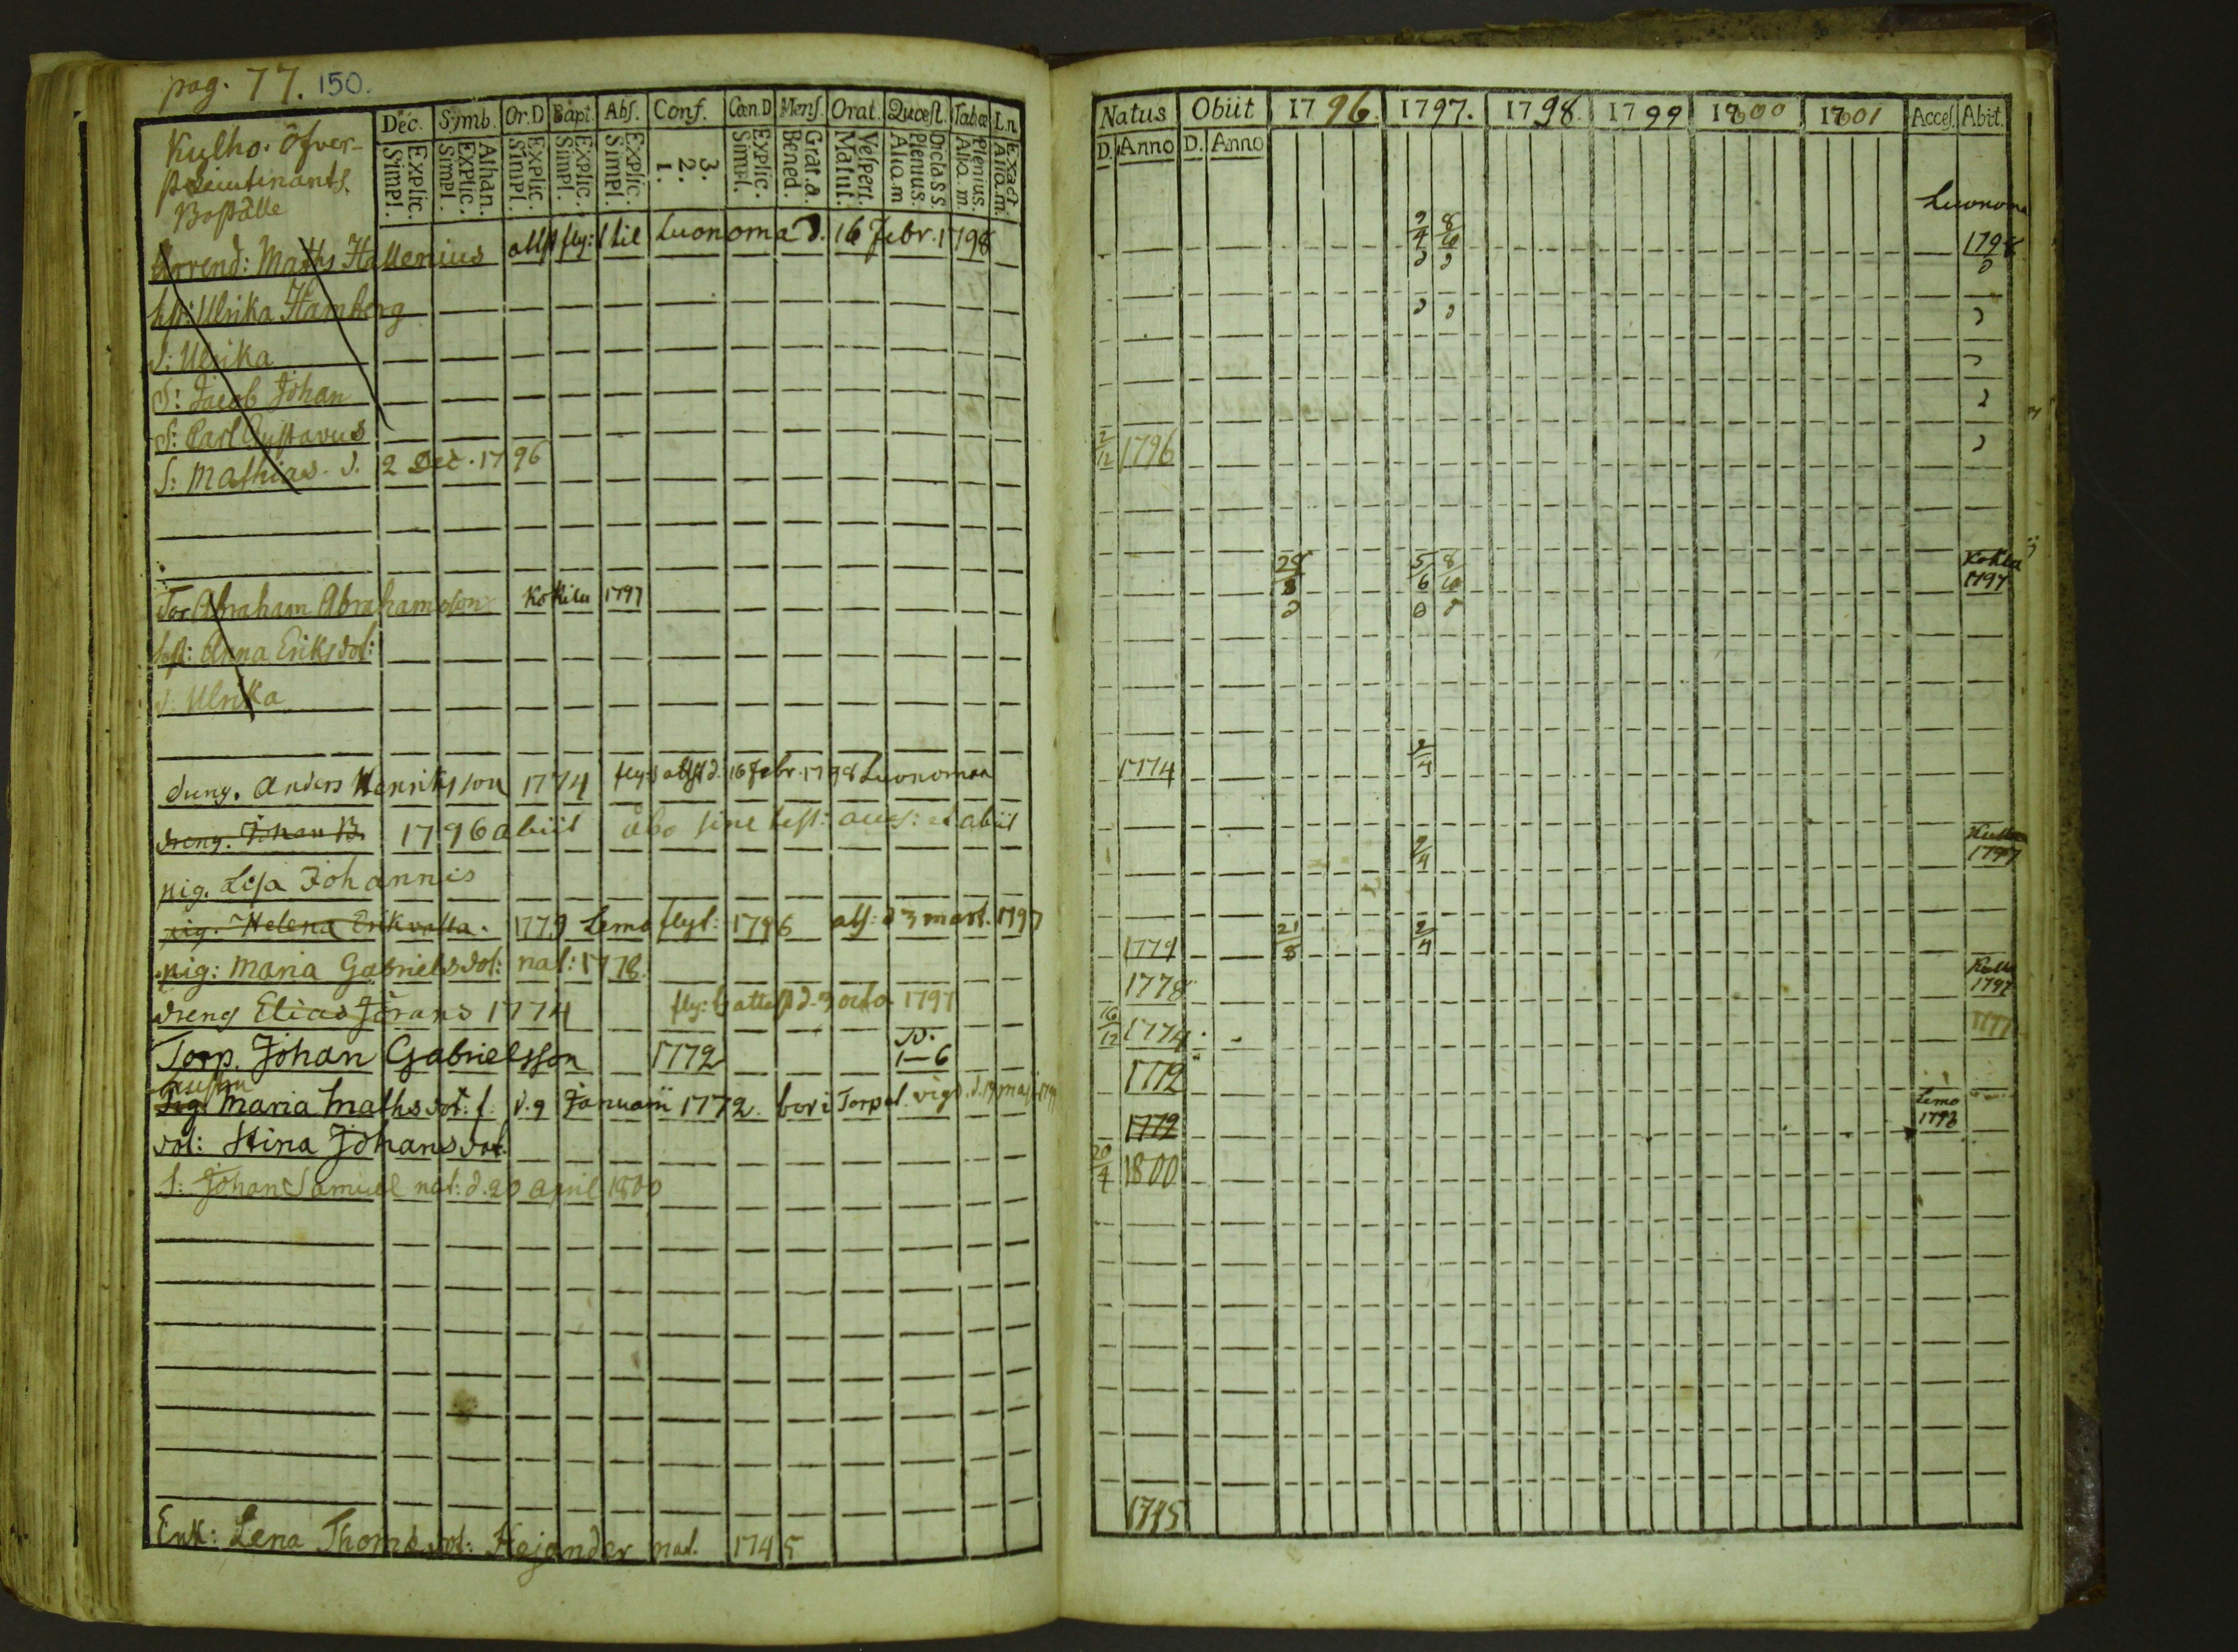 pag. 77. 150.
Kylho. Öfver-
Boställe
Dec. Symb. Or.D Bapt. Abs. Conf. Cœn.D Mens. Orat. Quæst. Tabæ Ln.
Explic. Simpl. Athan. Explic. Simpl. Explic. Simpl. Explic. Simpl. Explic. Simpl. 3. 2. 1. Explic. Simpl. Grat.a. Bened. Vespert. Matut. Dict.a S.S. Plenius. Alia.m Plenius. Alia.m. Exact Alia.m.
Arrend: Maths Hallenius attst fly: til Luonoma d. 16 Febr. 1798
hst: Ulrika Hamberg
d: Ulrika
S: Jacob Johan
S: Carl Gustavus
S: Mathias d. 2 Dec. 1796
Tor Abraham Abrahamsson 1797
hst: Anna Eriksdot:
d: Ulrika
dreng. Anders Henriksson 1774 d. 16 Febr. 1798 Luonomaa
dreng. Johan B. 1796 abiit åbo sine test: et abiit
pig. Lisa Johannis
pig. Helena 1779 Lemo flyt: 1796 att: d 3 mart. 1797
pig: Maria Gabrielsdot: nat: 1778
dreng Elias Jörans 1774 attest d. 3 octo 1797
Torp. Johan Gabrielsson 1772 1–6
hustru
Pig. Maria Mathsdot: f. d. 9 Januarii 1772. bor i Torpet vigd.
dot: Stina Johansdot.
S: Johan Samuel nat: d. 20 April 1800
Enk: Lena Thomasdot: Hejander nat. 1745
Natus Obiit 1796. 1797. 1798. 1799 1800 1801 Acces. Abit.
D. Anno D. Anno
Luonoma
2/4 8/6 1798
2/12 1796
28/8 5/6 8/6 1797
1774 2/4
2/4 1797
1779 21/8 2/4
1778 1797
16/12 1774
1772
1772 Lemo 1798
20/4 1800
1745